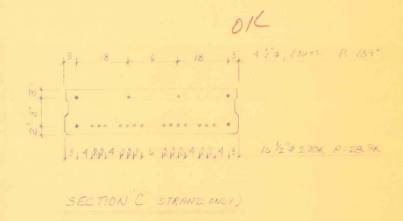 OK
3 18 6 18 3 4 ½"φ, 270K P=28.9K
3"
8"
2"
3 4 2 2 2 4 2 2 2 6 2 2 2 4 2 2 2 4 3 15 ½"φ 270K P=28.9K
SECTION "C" STRAND ONLY)